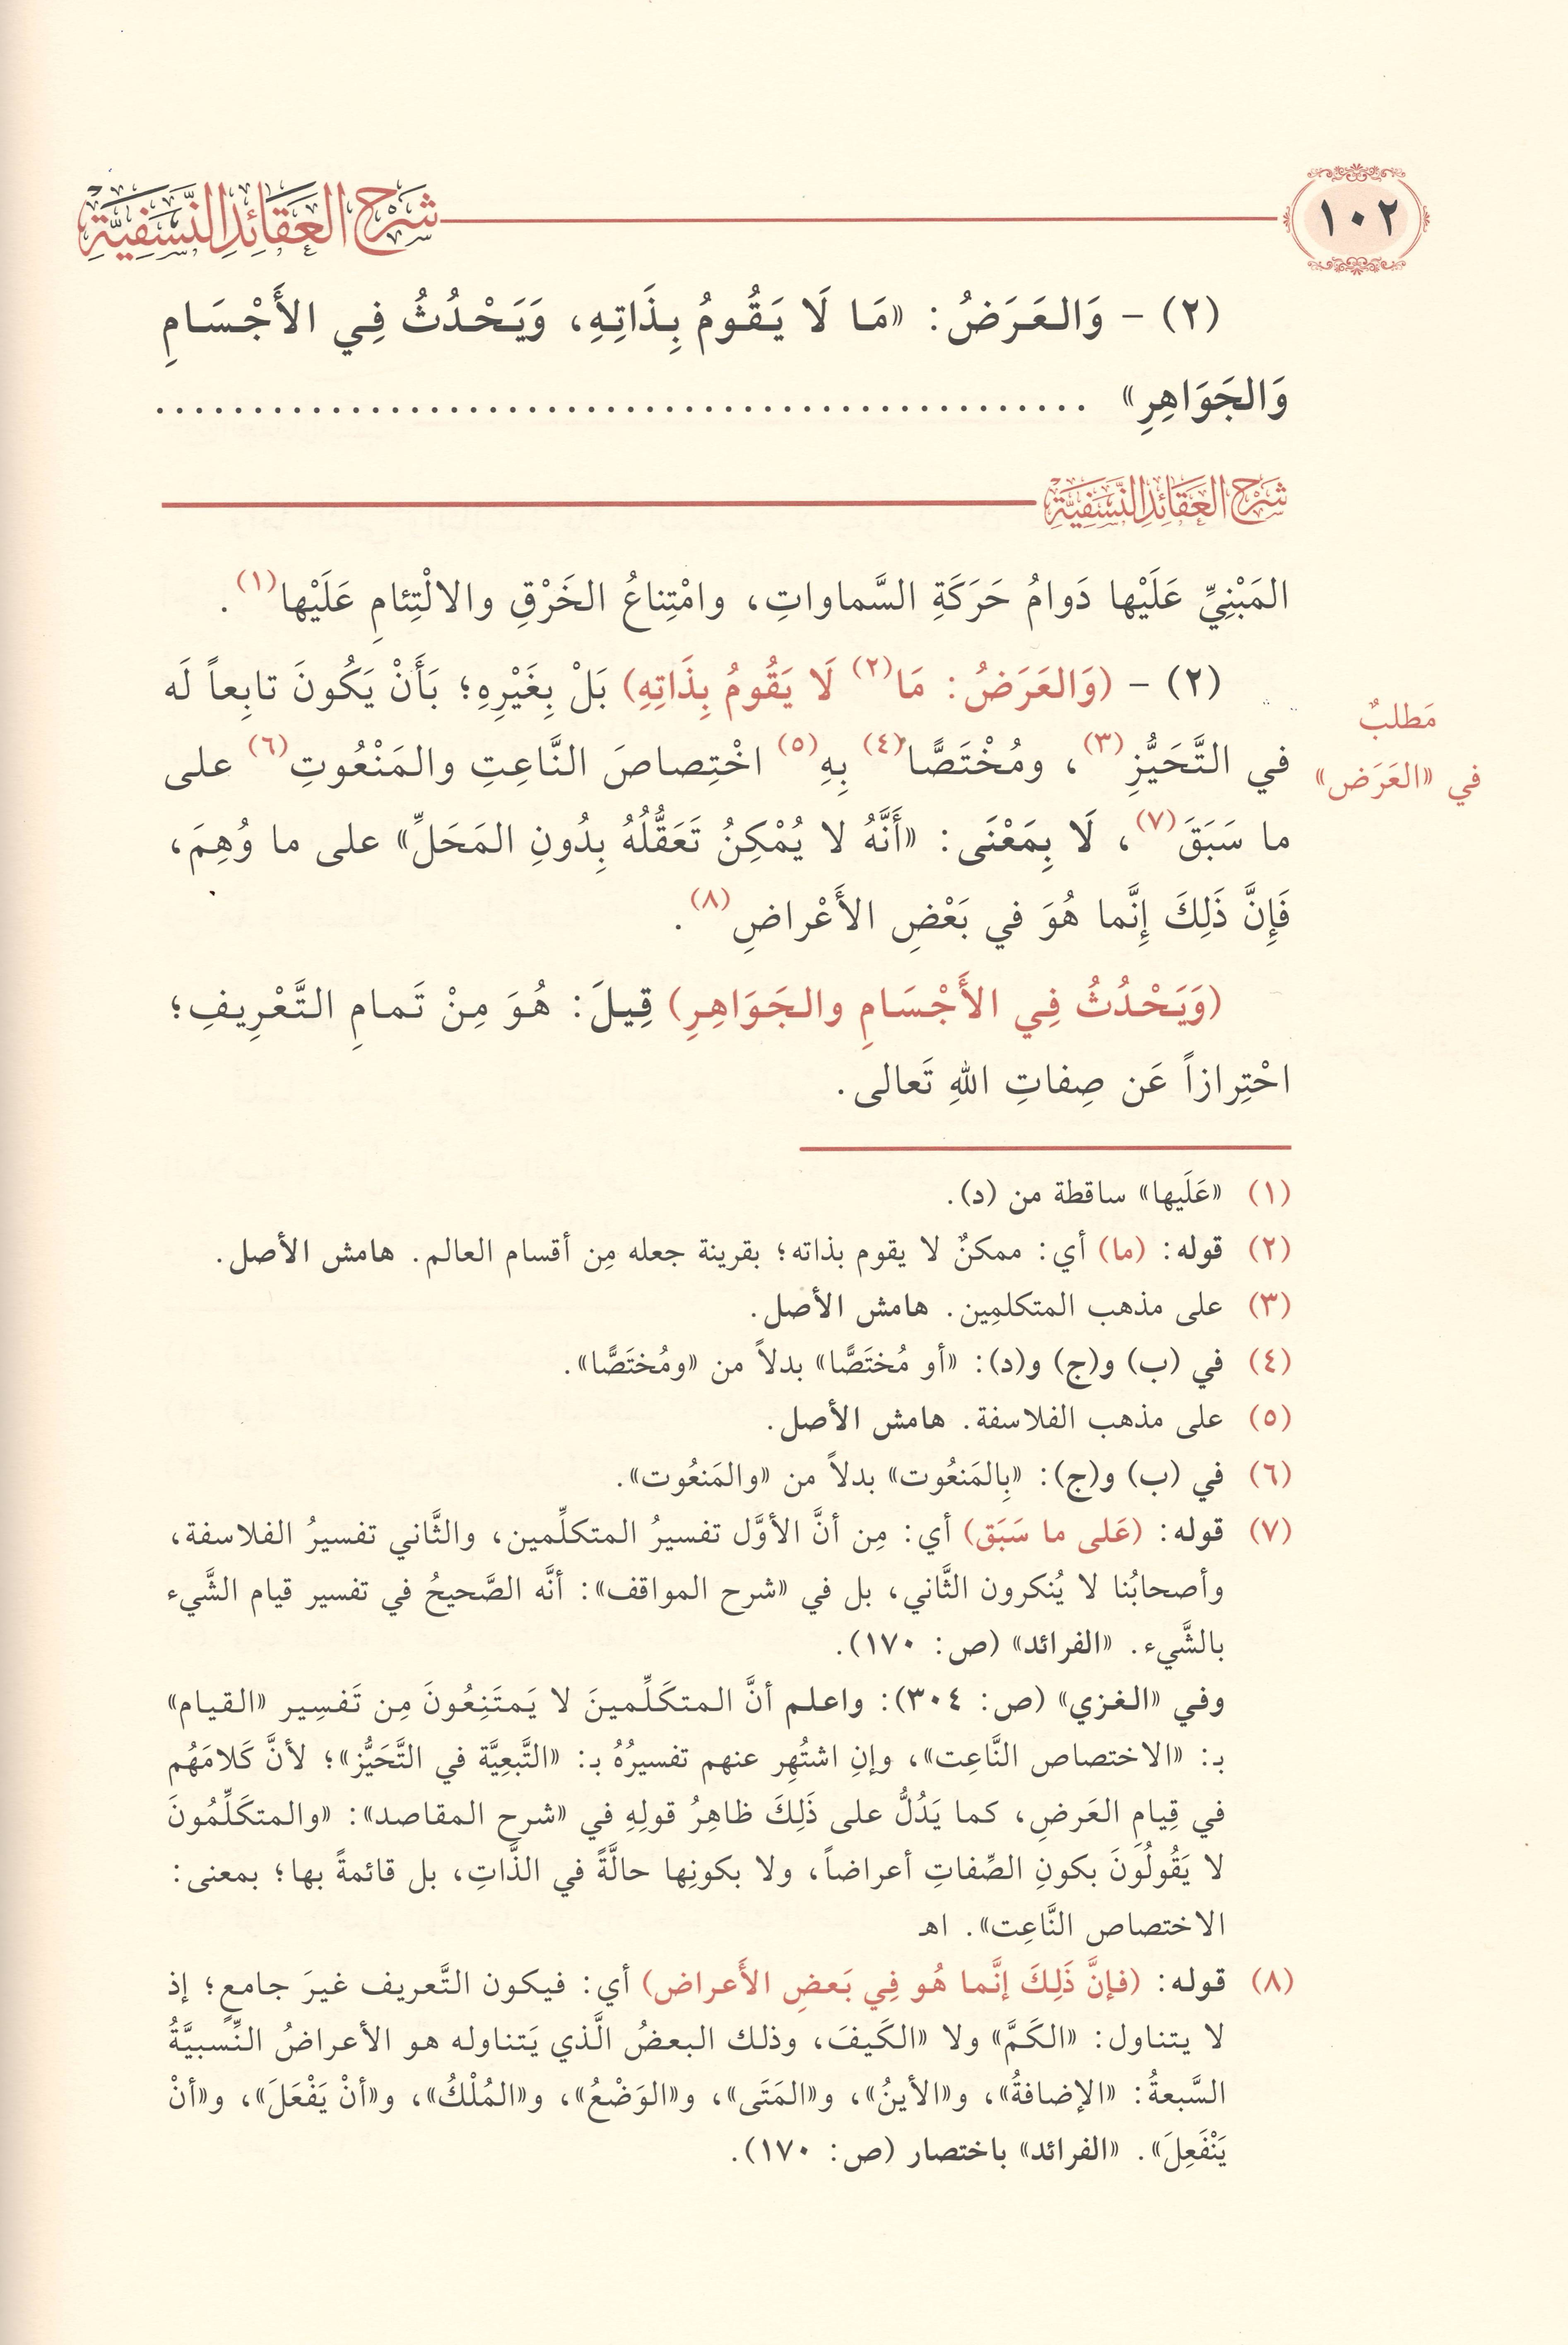 ١٠٢
شَرْحُ العَقَائِدِ النَّسَفِيَّةِ
(٢) - وَالعَرَضُ: «مَا لَا يَقُومُ بِذَاتِهِ، وَيَحْدُثُ فِي الأَجْسَامِ
وَالجَوَاهِرِ» ................................................
شَرْحُ العَقَائِدِ النَّسَفِيَّةِ
المَبْنِيِّ عَلَيْها دَوامُ حَرَكَةِ السَّماواتِ، وامْتِناعُ الخَرْقِ والالْتِئامِ عَلَيْها(١).
(٢) - (وَالعَرَضُ: مَا(٢) لَا يَقُومُ بِذَاتِهِ) بَلْ بِغَيْرِهِ؛ بَأَنْ يَكُونَ تابِعاً لَه
مَطلبٌ
في «العَرَض»
في التَّحَيُّزِ(٣)، ومُخْتَصًّا(٤) بِهِ(٥) اخْتِصاصَ النَّاعِتِ والمَنْعُوتِ(٦) على
ما سَبَقَ(٧)، لَا بِمَعْنَى: «أَنَّهُ لا يُمْكِنُ تَعَقُّلُهُ بِدُونِ المَحَلِّ» على ما وُهِمَ،
فَإِنَّ ذَلِكَ إِنَّما هُوَ في بَعْضِ الأَعْراضِ(٨).
(وَيَحْدُثُ فِي الأَجْسَامِ والجَوَاهِرِ) قِيلَ: هُوَ مِنْ تَمامِ التَّعْرِيفِ؛
احْتِرازاً عَن صِفاتِ اللهِ تَعالى.
(١) «عَلَيها» ساقطة من (د).
(٢) قوله: (ما) أي: ممكنٌ لا يقوم بذاته؛ بقرينة جعله مِن أقسام العالم. هامش الأصل.
(٣) على مذهب المتكلمِين. هامش الأصل.
(٤) في (ب) و(ج) و(د): «أو مُختَصًّا» بدلاً من «ومُختَصًّا».
(٥) على مذهب الفلاسفة. هامش الأصل.
(٦) في (ب) و(ج): «بِالمَنعُوت» بدلاً من «والمَنعُوت».
(٧) قوله: (عَلى ما سَبَق) أي: مِن أنَّ الأوَّل تفسيرُ المتكلِّمين، والثَّاني تفسيرُ الفلاسفة،
وأصحابُنا لا يُنكرون الثَّاني، بل في «شرح المواقف»: أنَّه الصَّحيحُ في تفسير قيام الشَّيء
بالشَّيء. «الفرائد» (ص: ١٧٠).
وفي «الغزي» (ص: ٣٠٤): واعلم أنَّ المتكَلِّمينَ لا يَمتَنِعُونَ مِن تَفسِير «القيام»
بـ: «الاختصاص النَّاعِت»، وإنِ اشتُهِر عنهم تفسيرُهُ بـ: «التَّبعِيَّة في التَّحَيُّز»؛ لأنَّ كَلامَهُم
في قِيامِ العَرضِ، كما يَدُلُّ على ذَلِكَ ظاهِرُ قولِهِ في «شرح المقاصد»: «والمتكَلِّمُونَ
لا يَقُولُونَ بكونِ الصِّفاتِ أعراضاً، ولا بكونِها حالَّةً في الذَّاتِ، بل قائمةً بها؛ بمعنى:
الاختصاص النَّاعِت». اهـ
(٨) قوله: (فإنَّ ذَلِكَ إنَّما هُو فِي بَعضِ الأَعراض) أي: فيكون التَّعريف غيرَ جامعٍ؛ إذ
لا يتناول: «الكَمَّ» ولا «الكَيفَ، وذلك البعضُ الَّذي يَتناوله هو الأعراضُ النِّسبيَّةُ
السَّبعةُ: «الإضافةُ»، و«الأينُ»، و«المَتَى»، و«الوَضْعُ»، و«المُلْكُ»، و«أنْ يَفْعَلَ»، و«أنْ
يَنْفَعِلَ». «الفرائد» باختصار (ص: ١٧٠).